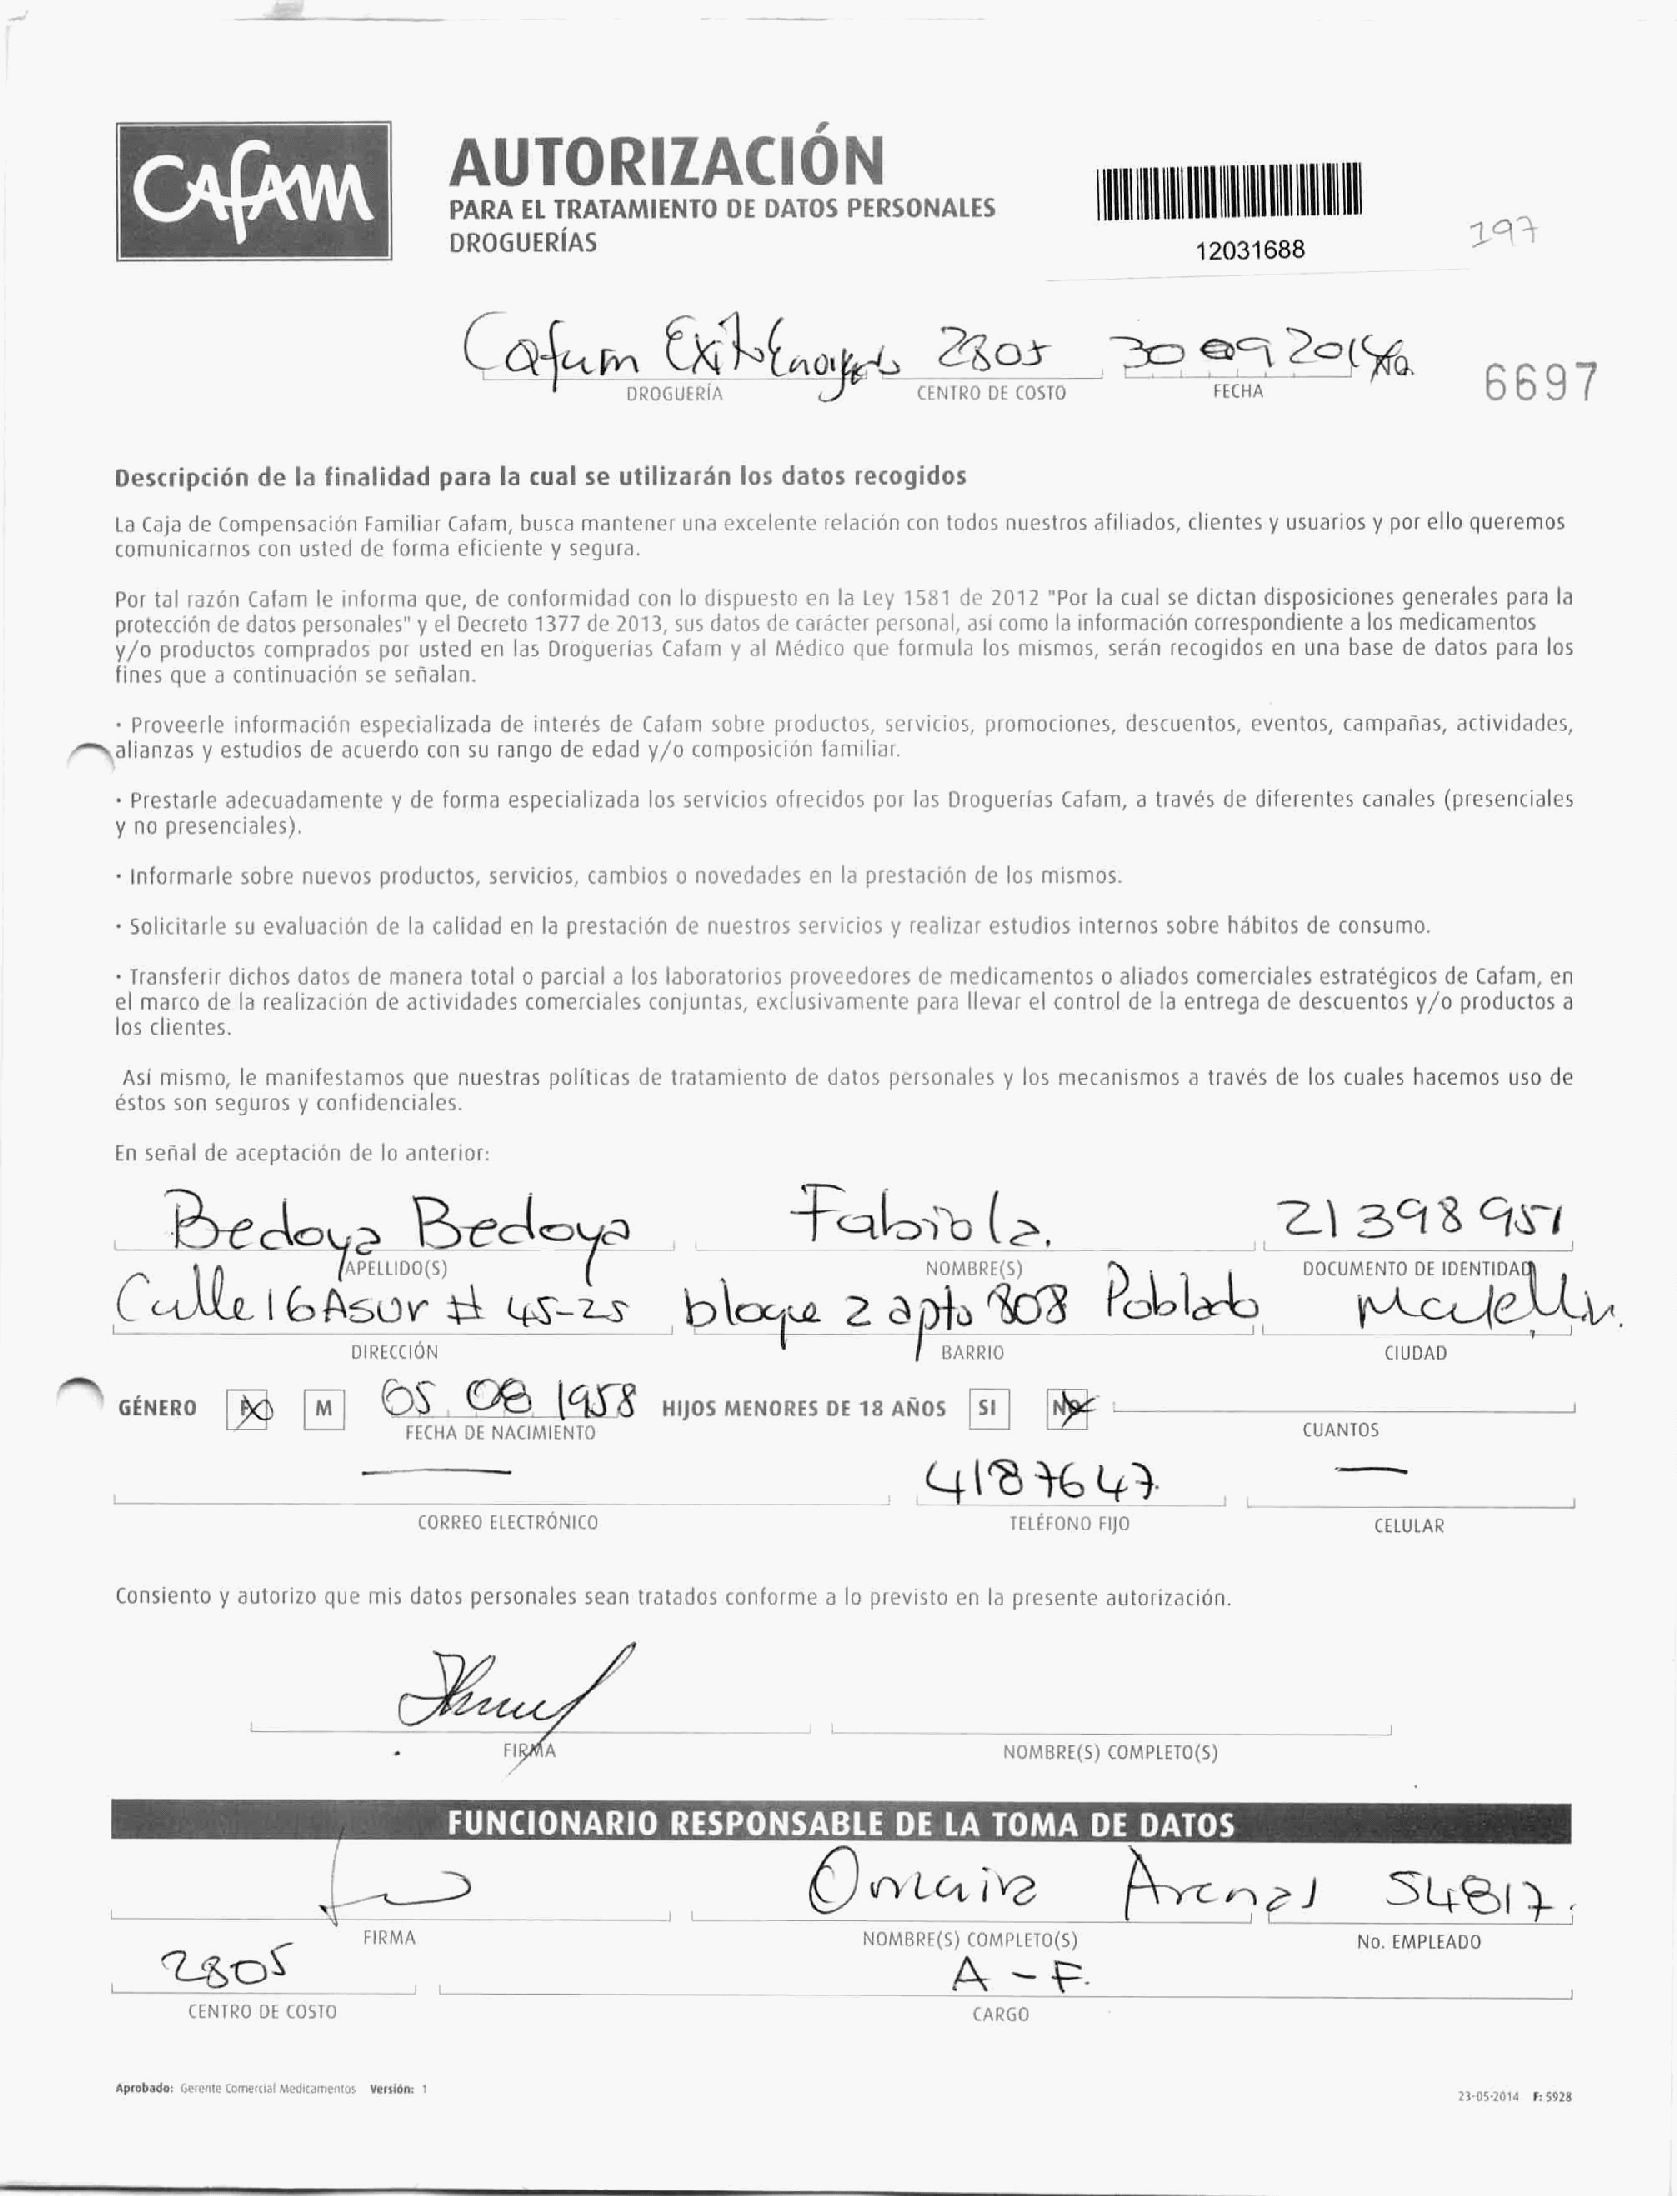 CAFAM
AUTORIZACIÓN
PARA EL TRATAMIENTO DE DATOS PERSONALES
DROGUERÍAS
12031688
197
Cafam Exito 2805 30 09 2014
DROGUERÍA CENTRO DE COSTO FECHA
6697
Descripción de la finalidad para la cual se utilizarán los datos recogidos
La Caja de Compensación Familiar Cafam, busca mantener una excelente relación con todos nuestros afiliados, clientes y usuarios y por ello queremos
comunicarnos con usted de forma eficiente y segura.
Por tal razón Cafam le informa que, de conformidad con lo dispuesto en la Ley 1581 de 2012 "Por la cual se dictan disposiciones generales para la
protección de datos personales" y el Decreto 1377 de 2013, sus datos de carácter personal, así como la información correspondiente a los medicamentos
y/o productos comprados por usted en las Droguerías Cafam y al Médico que formula los mismos, serán recogidos en una base de datos para los
fines que a continuación se señalan.
· Proveerle información especializada de interés de Cafam sobre productos, servicios, promociones, descuentos, eventos, campañas, actividades,
alianzas y estudios de acuerdo con su rango de edad y/o composición familiar.
· Prestarle adecuadamente y de forma especializada los servicios ofrecidos por las Droguerías Cafam, a través de diferentes canales (presenciales
y no presenciales).
· Informarle sobre nuevos productos, servicios, cambios o novedades en la prestación de los mismos.
· Solicitarle su evaluación de la calidad en la prestación de nuestros servicios y realizar estudios internos sobre hábitos de consumo.
· Transferir dichos datos de manera total o parcial a los laboratorios proveedores de medicamentos o aliados comerciales estratégicos de Cafam, en
el marco de la realización de actividades comerciales conjuntas, exclusivamente para llevar el control de la entrega de descuentos y/o productos a
los clientes.
Así mismo, le manifestamos que nuestras políticas de tratamiento de datos personales y los mecanismos a través de los cuales hacemos uso de
éstos son seguros y confidenciales.
En señal de aceptación de lo anterior:
Bedoya Bedoya Fabiola. 21398951
APELLIDO(S) NOMBRE(S) DOCUMENTO DE IDENTIDAD
Calle 16 A sur # 45-25 bloque 2 apto 808 Poblado Medellin.
DIRECCIÓN BARRIO CIUDAD
GÉNERO F M 05 08 1958 HIJOS MENORES DE 18 AÑOS SI NO
FECHA DE NACIMIENTO CUANTOS
— 4187647 —
CORREO ELECTRÓNICO TELÉFONO FIJO CELULAR
Consiento y autorizo que mis datos personales sean tratados conforme a lo previsto en la presente autorización.
FIRMA NOMBRE(S) COMPLETO(S)
FUNCIONARIO RESPONSABLE DE LA TOMA DE DATOS
Omaira Arenas 54817
FIRMA NOMBRE(S) COMPLETO(S) No. EMPLEADO
2805 A - F.
CENTRO DE COSTO CARGO
Aprobado: Gerente Comercial Medicamentos Versión: 1
23-05-2014 F: 5928